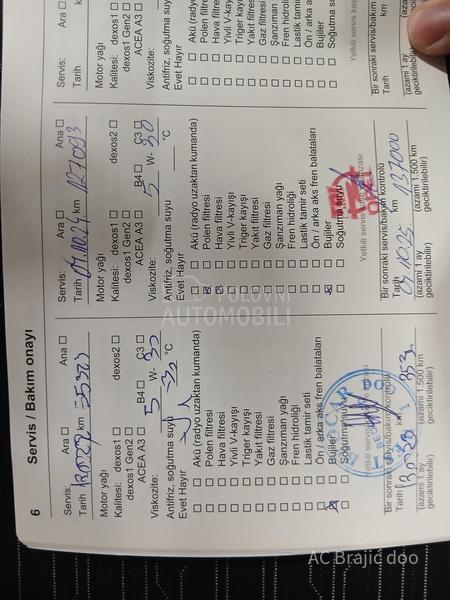 6
Servis / Bakım onayı
Servis: Ara Ana
Tarih km
Motor yağı
Kalitesi: dexos1 dexos2
dexos1 Gen2
ACEA A3 B4 C3
Viskozite: 5 W- 30
Antifriz, soğutma suyu °C
Evet Hayır
Akü (radyo uzaktan kumanda)
Polen filtresi
Hava filtresi
Yivli V-kayışı
Triger kayışı
Yakıt filtresi
Gaz filtresi
Şanzıman yağı
Fren hidroliği
Lastik tamir seti
Ön / arka aks fren balataları
Bujiler
Soğutma suyu
Bir sonraki servis/bakım kontrolü
Tarih km
(azami 1 ay (azami 1.500 km
geciktirilebilir) geciktirilebilir)
Servis: Ara Ana
Tarih km 127093
Motor yağı
Kalitesi: dexos1 dexos2
dexos1 Gen2
ACEA A3 B4 C3
Viskozite: 5 W- 30
Antifriz, soğutma suyu °C
Evet Hayır
Akü (radyo uzaktan kumanda)
Polen filtresi
Hava filtresi
Yivli V-kayışı
Triger kayışı
Yakıt filtresi
Gaz filtresi
Şanzıman yağı
Fren hidroliği
Lastik tamir seti
Ön / arka aks fren balataları
Bujiler
Soğutma suyu
Yetkili servis
OPEL
Bir sonraki servis/bakım kontrolü
Tarih 04.10.25 km 137000
(azami 1 ay (azami 1.500 km
geciktirilebilir) geciktirilebilir)
Servis: Ara
Tarih
Motor yağı
Kalitesi: dexos1
dexos1 Gen2
ACEA A3
Viskozite:
Antifriz, soğutma suyu
Evet Hayır
Akü (radyo
Polen filtresi
Hava filtresi
Yivli V-kayışı
Triger kayışı
Yakıt filtresi
Gaz filtresi
Şanzıman
Fren hidroliği
Lastik tamir
Ön / arka a
Bujiler
Soğutma su
Yetkili servis
Bir sonraki servis/bakım
Tarih
(azami 1 ay
geciktirilebilir)
POLOVNI
AUTOMOBILI
AC Brajic doo